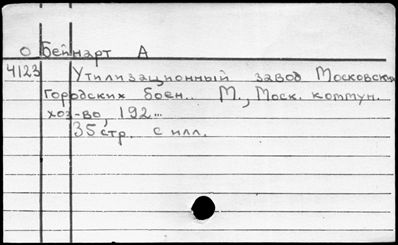 О Бейнарт А
4123 Утилизационный завод Московских
городских боен.. М., Моск. коммун.
хоз-во, 192...
35 стр. с илл.